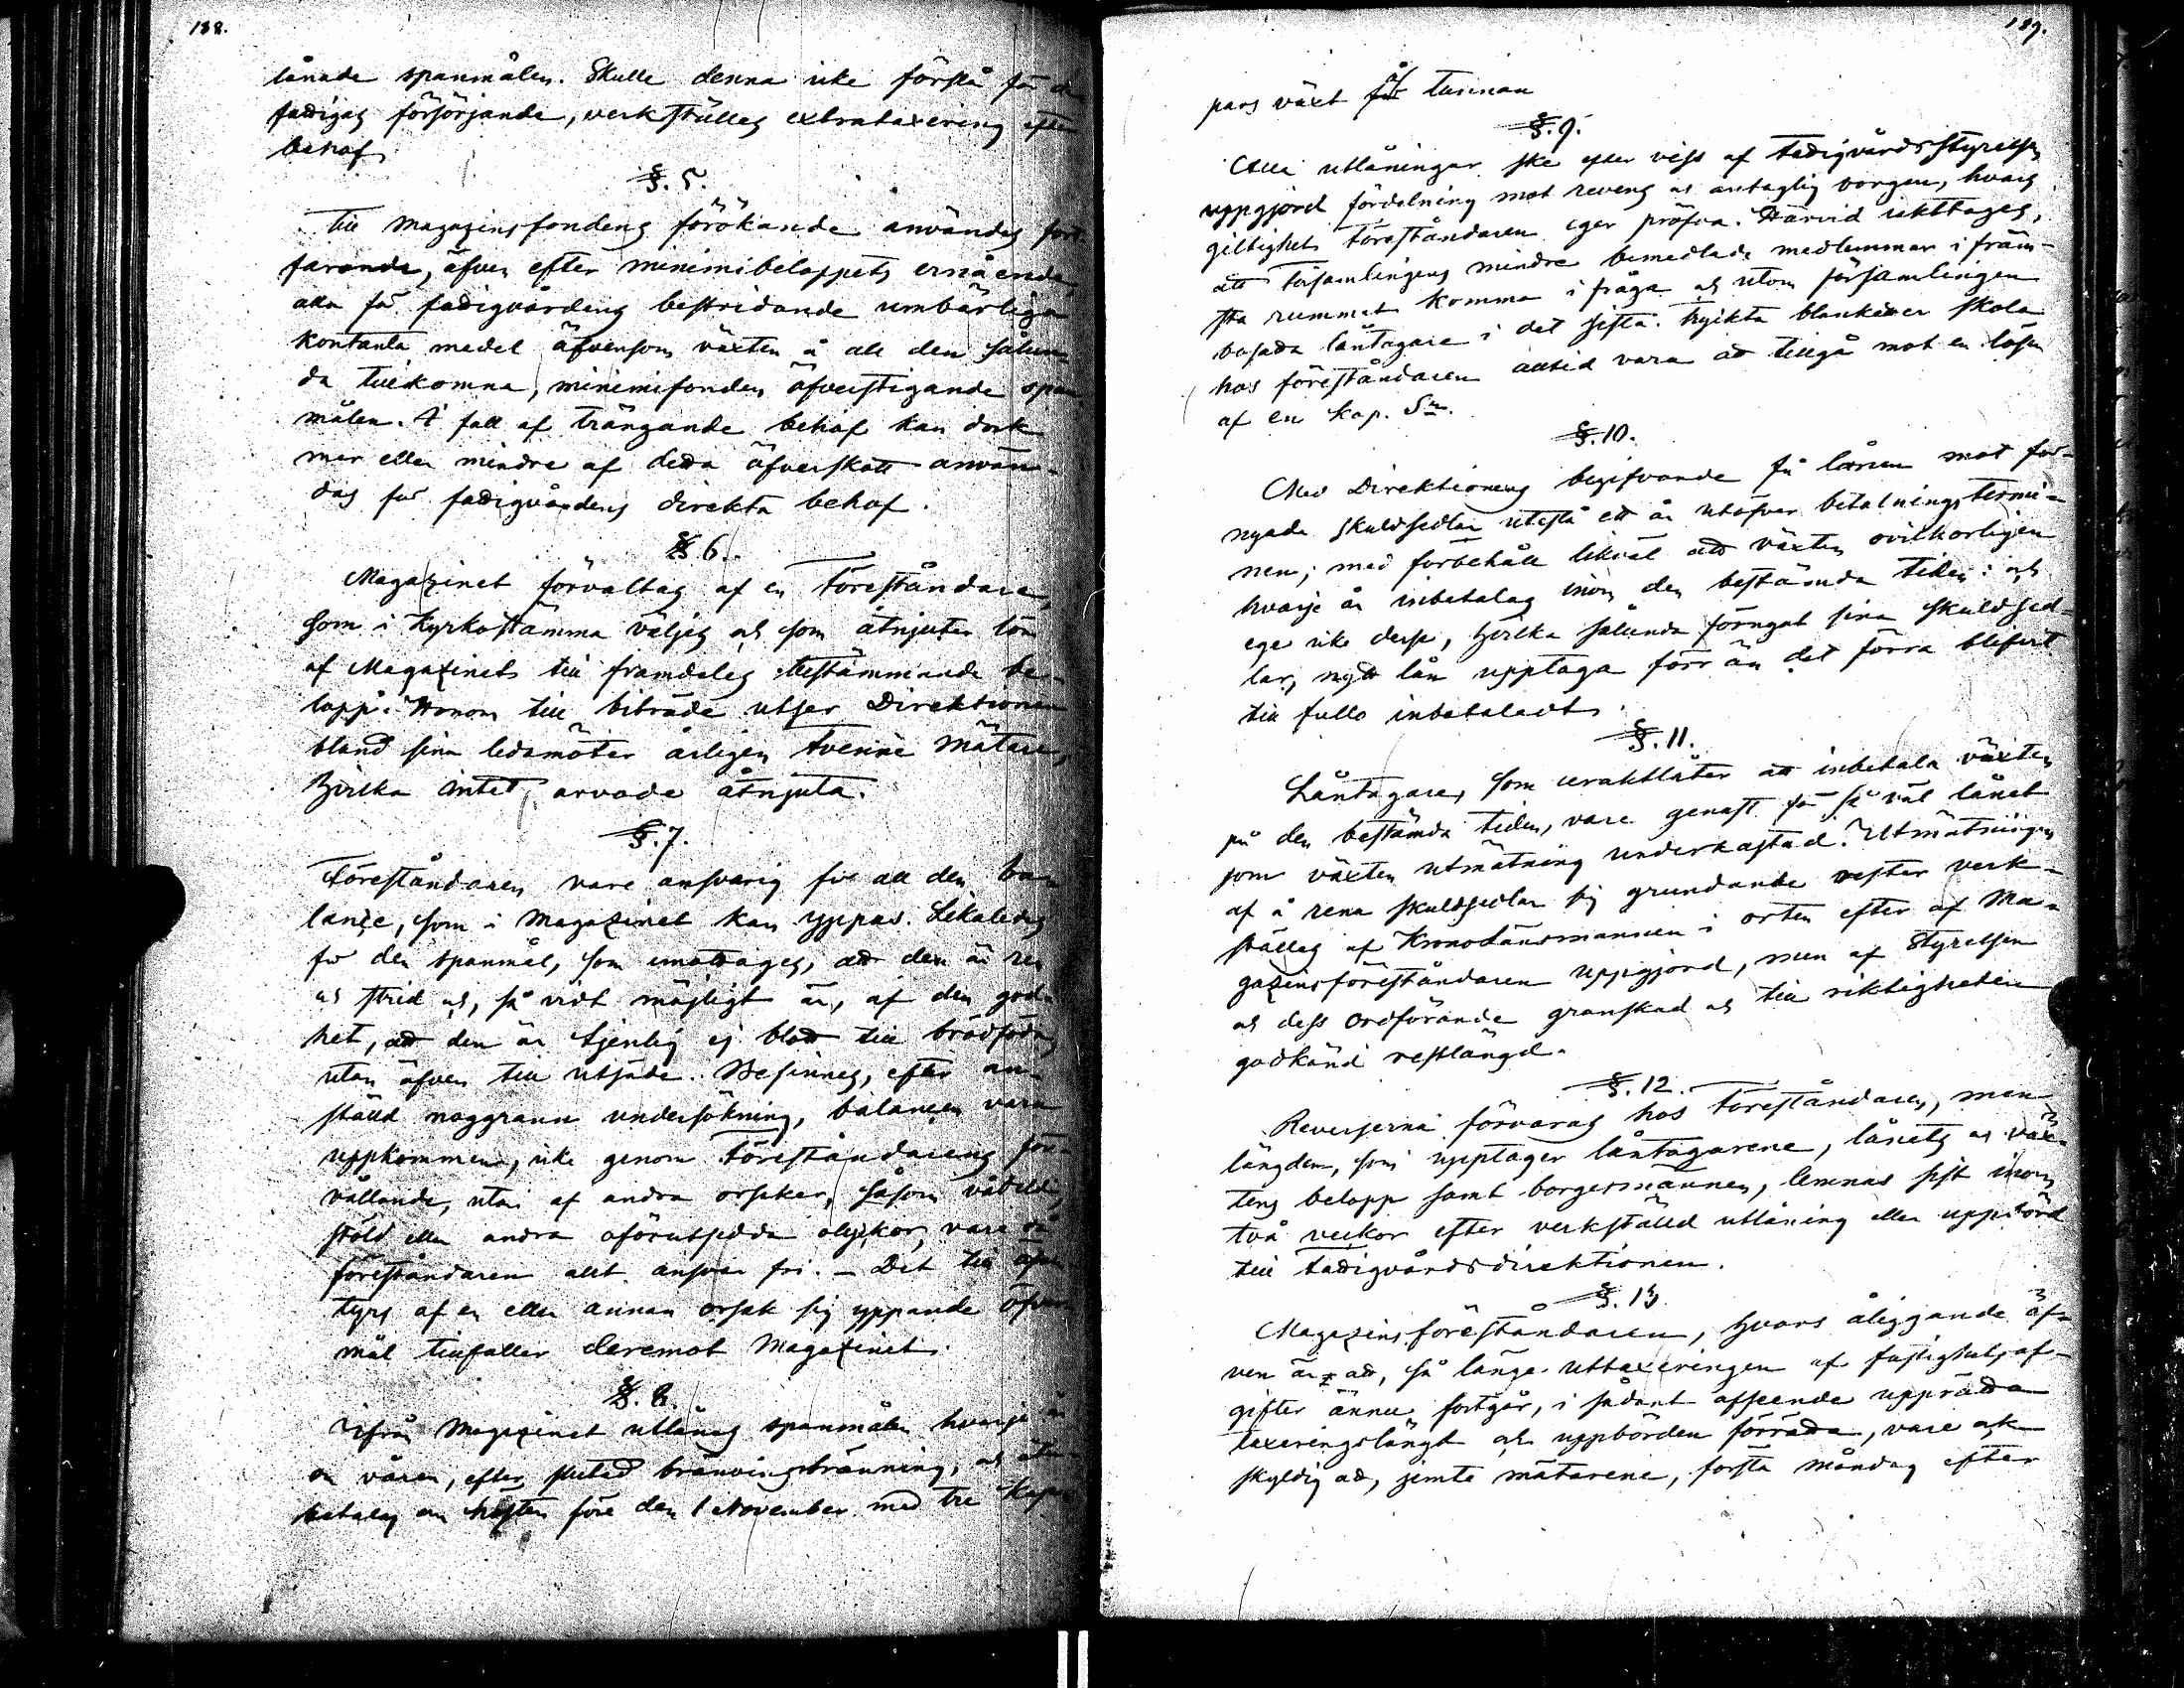 188.
lånade spanmålen. Skulle denna icke förslå för de
fattigas försörjande, verkställes extrataxering efter
behof.
§. 5.
Till Magazinsfondens förökande användes fort-
farande, äfven efter minimibeloppets ernående,
alla för fattigvårdens bestridande umbärliga
kontanta medel äfvensom växten å all den sålun-
da tillkomna, minimifonden öfverstigande span-
målen. I fall af trängande behof kan dock
mer eller mindre af detta öfverskott använ-
das för fattigvårdens direkta behof.
§ 6.
Magazinet förvaltas af en Föreståndare,
som i Kyrkostämma väljes och som åtnjuter lön
af Magazinets till framdeles bestämmande be-
lopp. Honom till biträde utser Direktionen
bland sina ledamöter årligen tvenne Mätare,
hvilka intet arvode åtnjuta.
§. 7.
Föreståndaren vare ansvarig för all den ba-
lance, som i Magazinet kan yppas. Likaledes
för den spanmål, som emottages, att den är ren
och strid och, så vidt möjligt är, af den god-
het, att den är tjenlig ej blott till brödföda
utan äfven till utsäde. Befinnes, efter an-
ställd noggrann undersökning, balancen vara
uppkommen, icke genom Föreståndarens för-
vållande, utan af andra orsaker, såsom vådeld,
stöld eller andra oförutsedda olyckor, vare då
föreståndaren allt ansvar fri. – Det till äfven-
tyrs af en eller annan orsak sig yppande öfver-
mål tillfaller deremot Magazinet.
§. 8.
Ifrån Magazinet utlånas spanmålen hvarje år
om våren, efter slutad bränvinsbränning, och åter-
betalas om hösten före den 1 November med tre kap-
189.
pars växt å tunnan
§. 9.
Alla utlåningar ske efter viss af Fattigvårdsstyrelsen
uppgjord fördelning mot revers och antaglig borgen, hvars
giltighet Föreståndaren eger pröfva. Härvid iakttages,
att Församlingens mindre bemedlade medlemmar i främ-
sta rummet komma i fråga och utom församlingen
bosatta låntagare i det sista. Tryckta blanketter skola
hos föreståndaren alltid vara att tillgå mot en lösen
af en kop. S:r.
§. 10.
Med Direktionens begifvande få lånen mot för-
nyade skuldsedlar utestå ett år utöfver betalningstermi-
nen; med förbehåll likväl att växten ovilkorligen
hvarje år inbetalas inom den bestämda tiden: och
ege icke desse, hvilka sålunda förnyat sina skuldsed-
lar, nytt lån upptaga förr än det förra blifvit
till fullo inbetaladt.
§. 11.
Låntagare, som uraktlåter att inbetala växten
på den bestämda tiden, vare genast för så väl lånet
som växten utmätning underkastad. Utmätningen
af å rena skuldsedlar sig grundande rester verk-
ställes af Kronolänsmannen i orten efter af Ma-
gazinsföreståndaren uppgjord, men af Styrelsen
och dess Ordförande granskad och till riktigheten
godkänd restlängd.
§. 12.
Reverserna förvaras hos Föreståndaren, men
längden, som upptager låntagarene, lånets och väx-
tens belopp samt borgesmännen, lemnas sist inom
två veckor efter verkställd utlåning eller uppbörd
till Fattigvårdsdirektionen.
§. 13.
Magazinsföreståndaren, hvars åliggande äf-
ven är att, så länge uttaxeringen af fastighetsaf-
gifter ännu fortgår, i sådant afseende upprätta
taxeringslängd och uppbörden förrätta, vare ock
skyldig att, jemte mätarene, första måndag efter